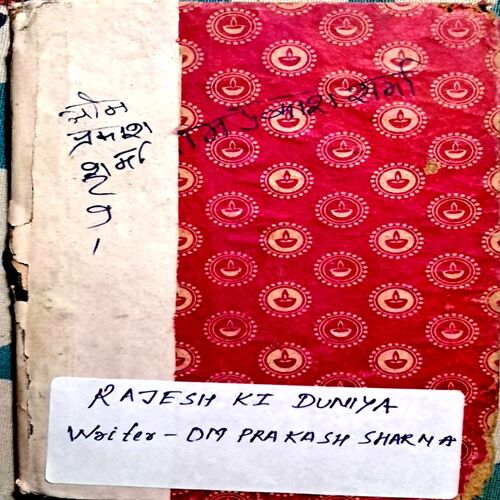 ओम
प्रकाश
शर्मा
ओम प्रकाश शर्मा
RAJESH KI DUNIYA
Writer - OM PRAKASH SHARMA